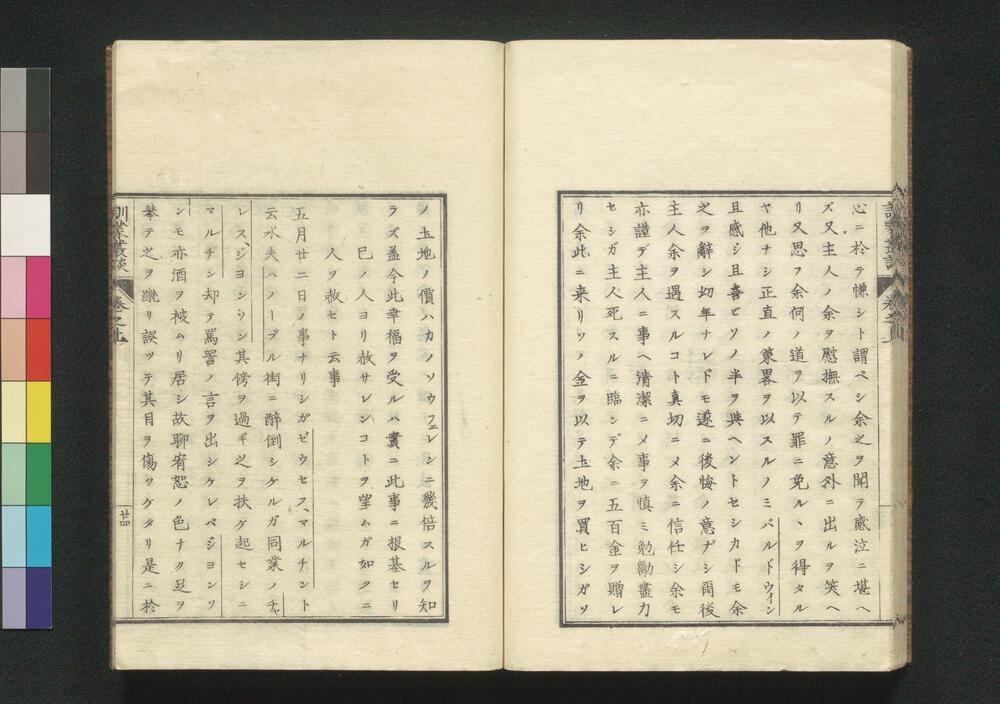 心ニ於テ慊シト謂ベシ余之ヲ聞テ感泣ニ堪ヘ
ズ又主人ノ余ヲ慰撫スルノ意外ニ出ルヲ笑ヘ
リ又思フ余何ノ道ヲ以テ罪ニ免ルヽヲ得タル
ヤ他ナシ正直ノ策畧ヲ以スルノミバルドウイン
且感シ且喜ビソノ半ヲ與ヘントセシカドモ余
之ヲ辭シ幼年ナレドモ遂ニ後悔ノ意ナシ爾後
主人余ヲ遇スルコト真切ニメ余ニ信任シ余モ
亦謹デ主人ニ事ヘ清潔ニメ事ヲ慎ミ勉勵盡力
セシガ主人死スルニ臨ンデ余ニ五百金ヲ贈レ
リ余此ニ来リソノ金ヲ以テ土地ヲ買ヒシガソ
ノ土地ノ價ハカノソウフェレンシニ幾倍スルヲ知
ラズ盖今此幸福ヲ受ルハ實ニ此事ニ根基セリ
己ノ人ヨリ赦サレンコトヲ望ムガ如クニ
人ヲ赦セト云事
五月廿二日ノ事ナリシガゼウセフ、マルチント
云水夫ハノーブル街ニ醉倒シケルガ同業ノチャ
レス、ジヨンソン其傍ヲ過ギ之ヲ扶ケ起セシニ
マルチン却テ罵詈ノ言ヲ出シケレバジヨンソ
ンモ亦酒ヲ被ムリ居シ故聊宥恕ノ色ナク足ヲ
挙テ之ヲ蹴リ誤ッテ其目ヲ傷ツケタリ是ニ於
訓蒙叢談
卷之
廿四